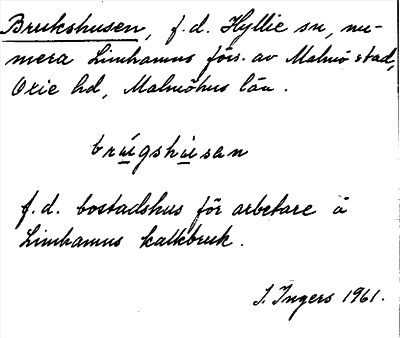 Brukshusen, f.d. Hyllie sn, nu-
mera Limhamns förs. av Malmö stad,
Oxie hd, Malmöhus län.
brúgshusan
f.d. bostadshus för arbetare å
Limhamns kalkbruk.
I. Ingers 1961.